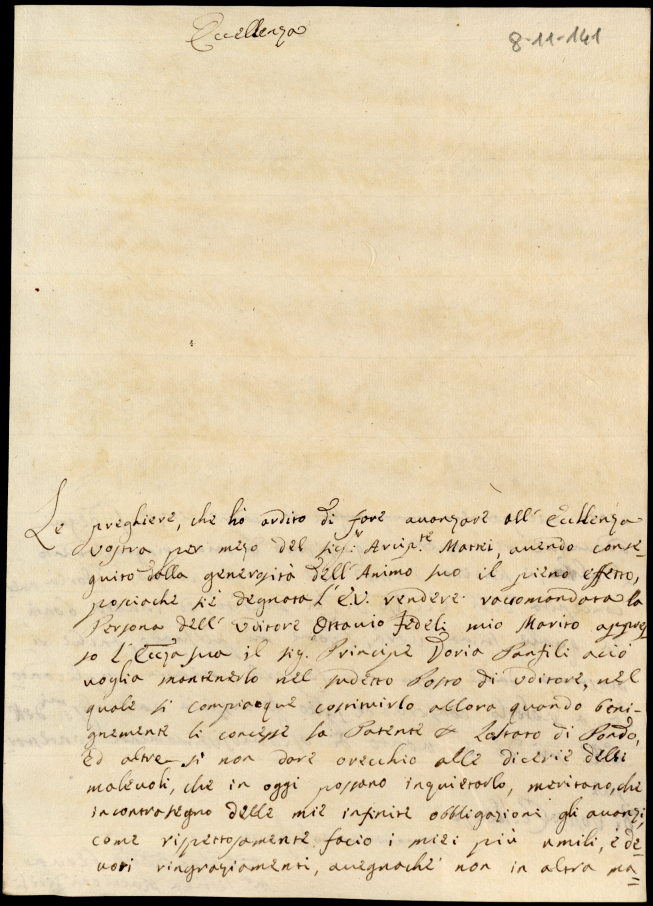 Eccellenza
8-11-141
Le preghiere, che hò ardito di fare avanzare all' Eccellenza
Vostra per mezo del Sig.r Arcip.te Mattei, avendo conse=
guito dalla generosità dell' Animo suo il pieno effetto,
posciache si è degnata l' E.V. rendere raccomandata la
Persona dell' Uditore Ottavio Fedeli mio Marito appres
so l' Ecc̃za sua il Sig. Principe Doria Panfili acciò
voglia mantenerlo nel sudetto Posto di Uditore, nel
quale si compiacque costituirlo allora quando beni=
gnemente li concesse la Patente di Lo Stato di
ed altre si non dare orecchio alle dicerie delli
malevoli, che in oggi possano inquietarlo, meritano, che
in contrasegno delle mie infinite obbligazioni gli avanzi,
come rispettosamente facio i miei più umili, e de=
voti ringraziamenti, avegnachè non in altra ma=